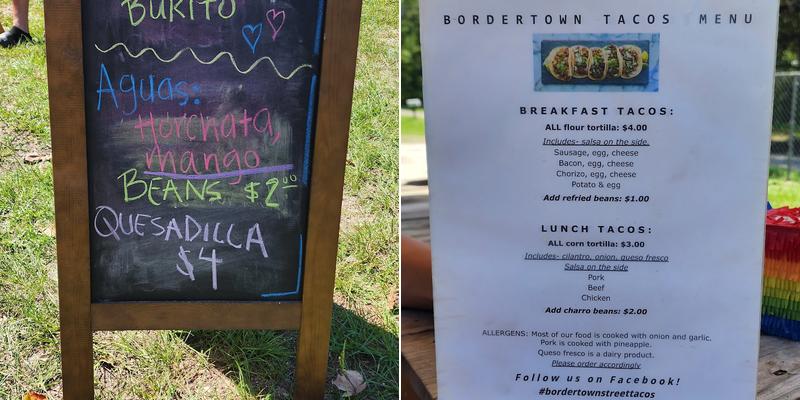 BURITO
Aguas:
Horchata,
mango
BEANS $2.00
QUESADILLA
$4
BORDERTOWN TACOS MENU
BREAKFAST TACOS:
ALL flour tortilla: $4.00
Includes- salsa on the side.
Sausage, egg, cheese
Bacon, egg, cheese
Chorizo, egg, cheese
Potato & egg
Add refried beans: $1.00
LUNCH TACOS:
ALL corn tortilla: $3.00
Includes- cilantro, onion, queso fresco
Salsa on the side
Pork
Beef
Chicken
Add charro beans: $2.00
ALLERGENS: Most of our food is cooked with onion and garlic.
Pork is cooked with pineapple.
Queso fresco is a dairy product.
Please order accordingly
Follow us on Facebook!
#bordertownstreettacos